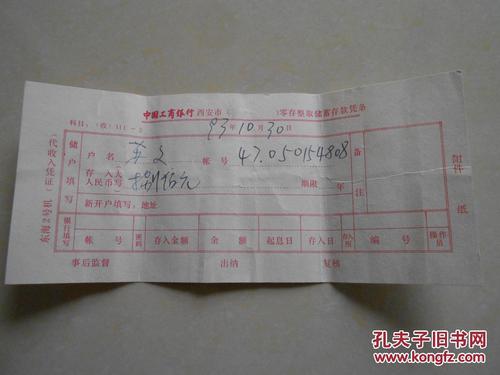 中国工商银行西安市( )零存整取储蓄存款凭条
科目:(收)
93年10月30日
储户填写
户名 英文 帐号 47.050154808 备注
存入人民币大写 捌佰元 期限 年
新开户填写:地址
银行填写
帐号 密码 存入金额 余额 起息日 存入日 存入所 编号 操作员
事后监督 出纳 复核
(代收入凭证)
东海2号机
附件 纸
孔夫子旧书网
www.kongfz.com